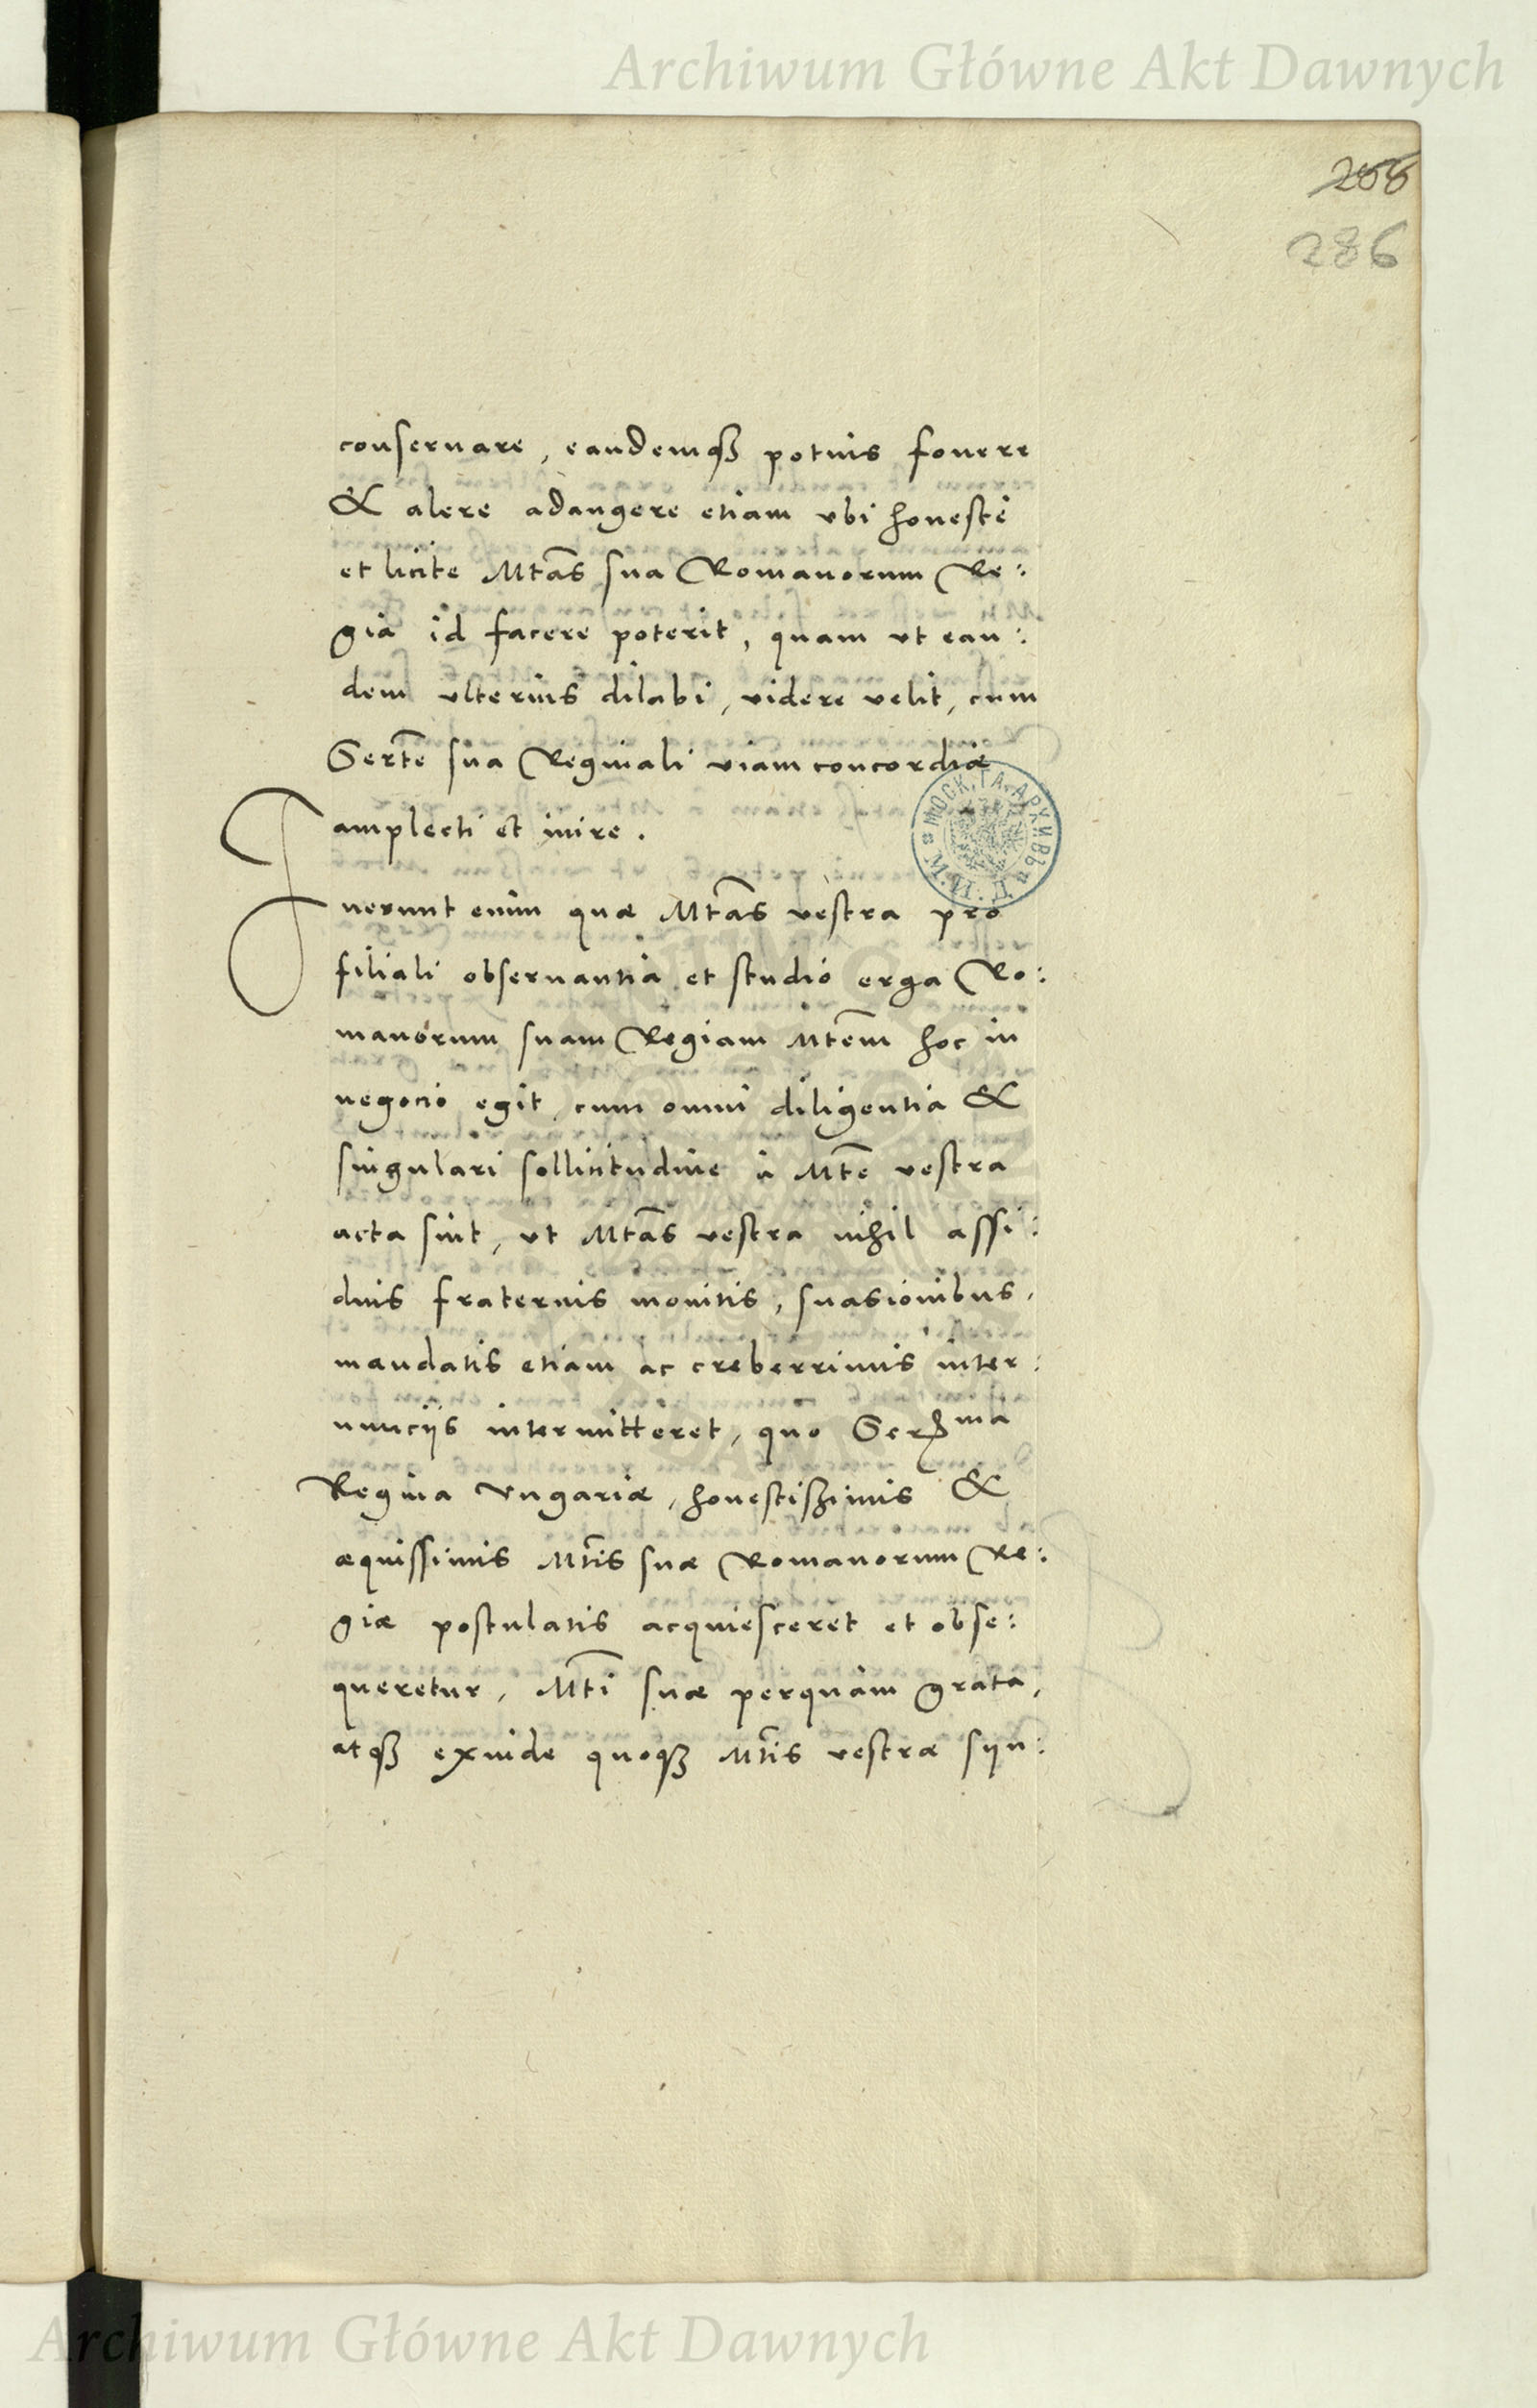 Archiwum Główne Akt Dawnych
266
286
conseruare, eandemq3 potius fouere
& alere adaugere etiam vbi honestè
et licite Mtās sua Romanorum Re:
gia id facere poterit, quam vt ean:
dem vlterius dilabi, videre velit, cum
Sertē sua Reginali viam concordiæ
amplecti et inire.
Fuerunt enim quæ Mtās vestra pro
filiali obseruantia et studio erga Ro:
manorum suam Regiam Mtēm hoc in
negocio egit, cum omni diligentia &
singulari sollicitudine à Mtē vestra
acta sint, vt Mtās vestra nihil assi:
duis fraternis monitis, suasionibus,
mandatis etiam ac creberrimis inter:
nunciis intermitteret, quo Serma
Regina Vngariæ, honestiszimis &
æquissimis Mtīs suæ Romanorum Re:
giæ postulatis acquiesceret et obse:
queretur, Mtī suæ perquàm grata,
atq3 exinde quoq3 Mtīs vestræ syn:
МОСК. ГЛ. АРХИВЪ М. И. Д.
Archiwum Główne Akt Dawnych